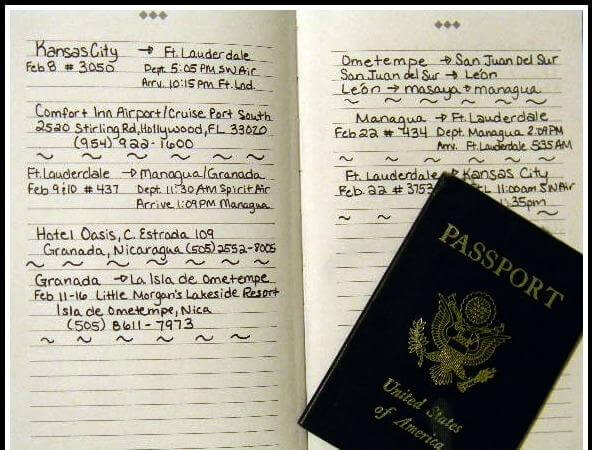 Kansas City → Ft. Lauderdale
Feb 8 # 3050 Dept. 5:05 PM SW Air
Arrv. 10:15 PM Ft. Lnd.
Comfort Inn Airport/Cruise Port South
2520 Stirling Rd, Hollywood, FL 33020
(954) 922-1600
Ft. Lauderdale → Managua/Granada
Feb 9;10 # 437 Dept. 11:30 AM Spirit Air
Arrive 1:09 PM Managua
Hotel Oasis, C. Estrada 109
Granada, Nicaragua (505) 2552-8005
Granada → La Isla de Ometempe
Feb 11-16 Little Morgan's Lakeside Resort
Isla de Ometempe, Nica
(505) 8611-7973
Ometempe → San Juan Del Sur
San Juan del Sur → León
León → masaya → managua
Managua → Ft. Lauderdale
Feb 22 # 434 Dept. Managua 2:09 PM
Arrv. Ft. Lauderdale 5:35 AM
Ft. Lauderdale → Kansas City
Feb. 22 # 3753 FTL 11:00am SW Air
1:35pm
PASSPORT
United States
of America